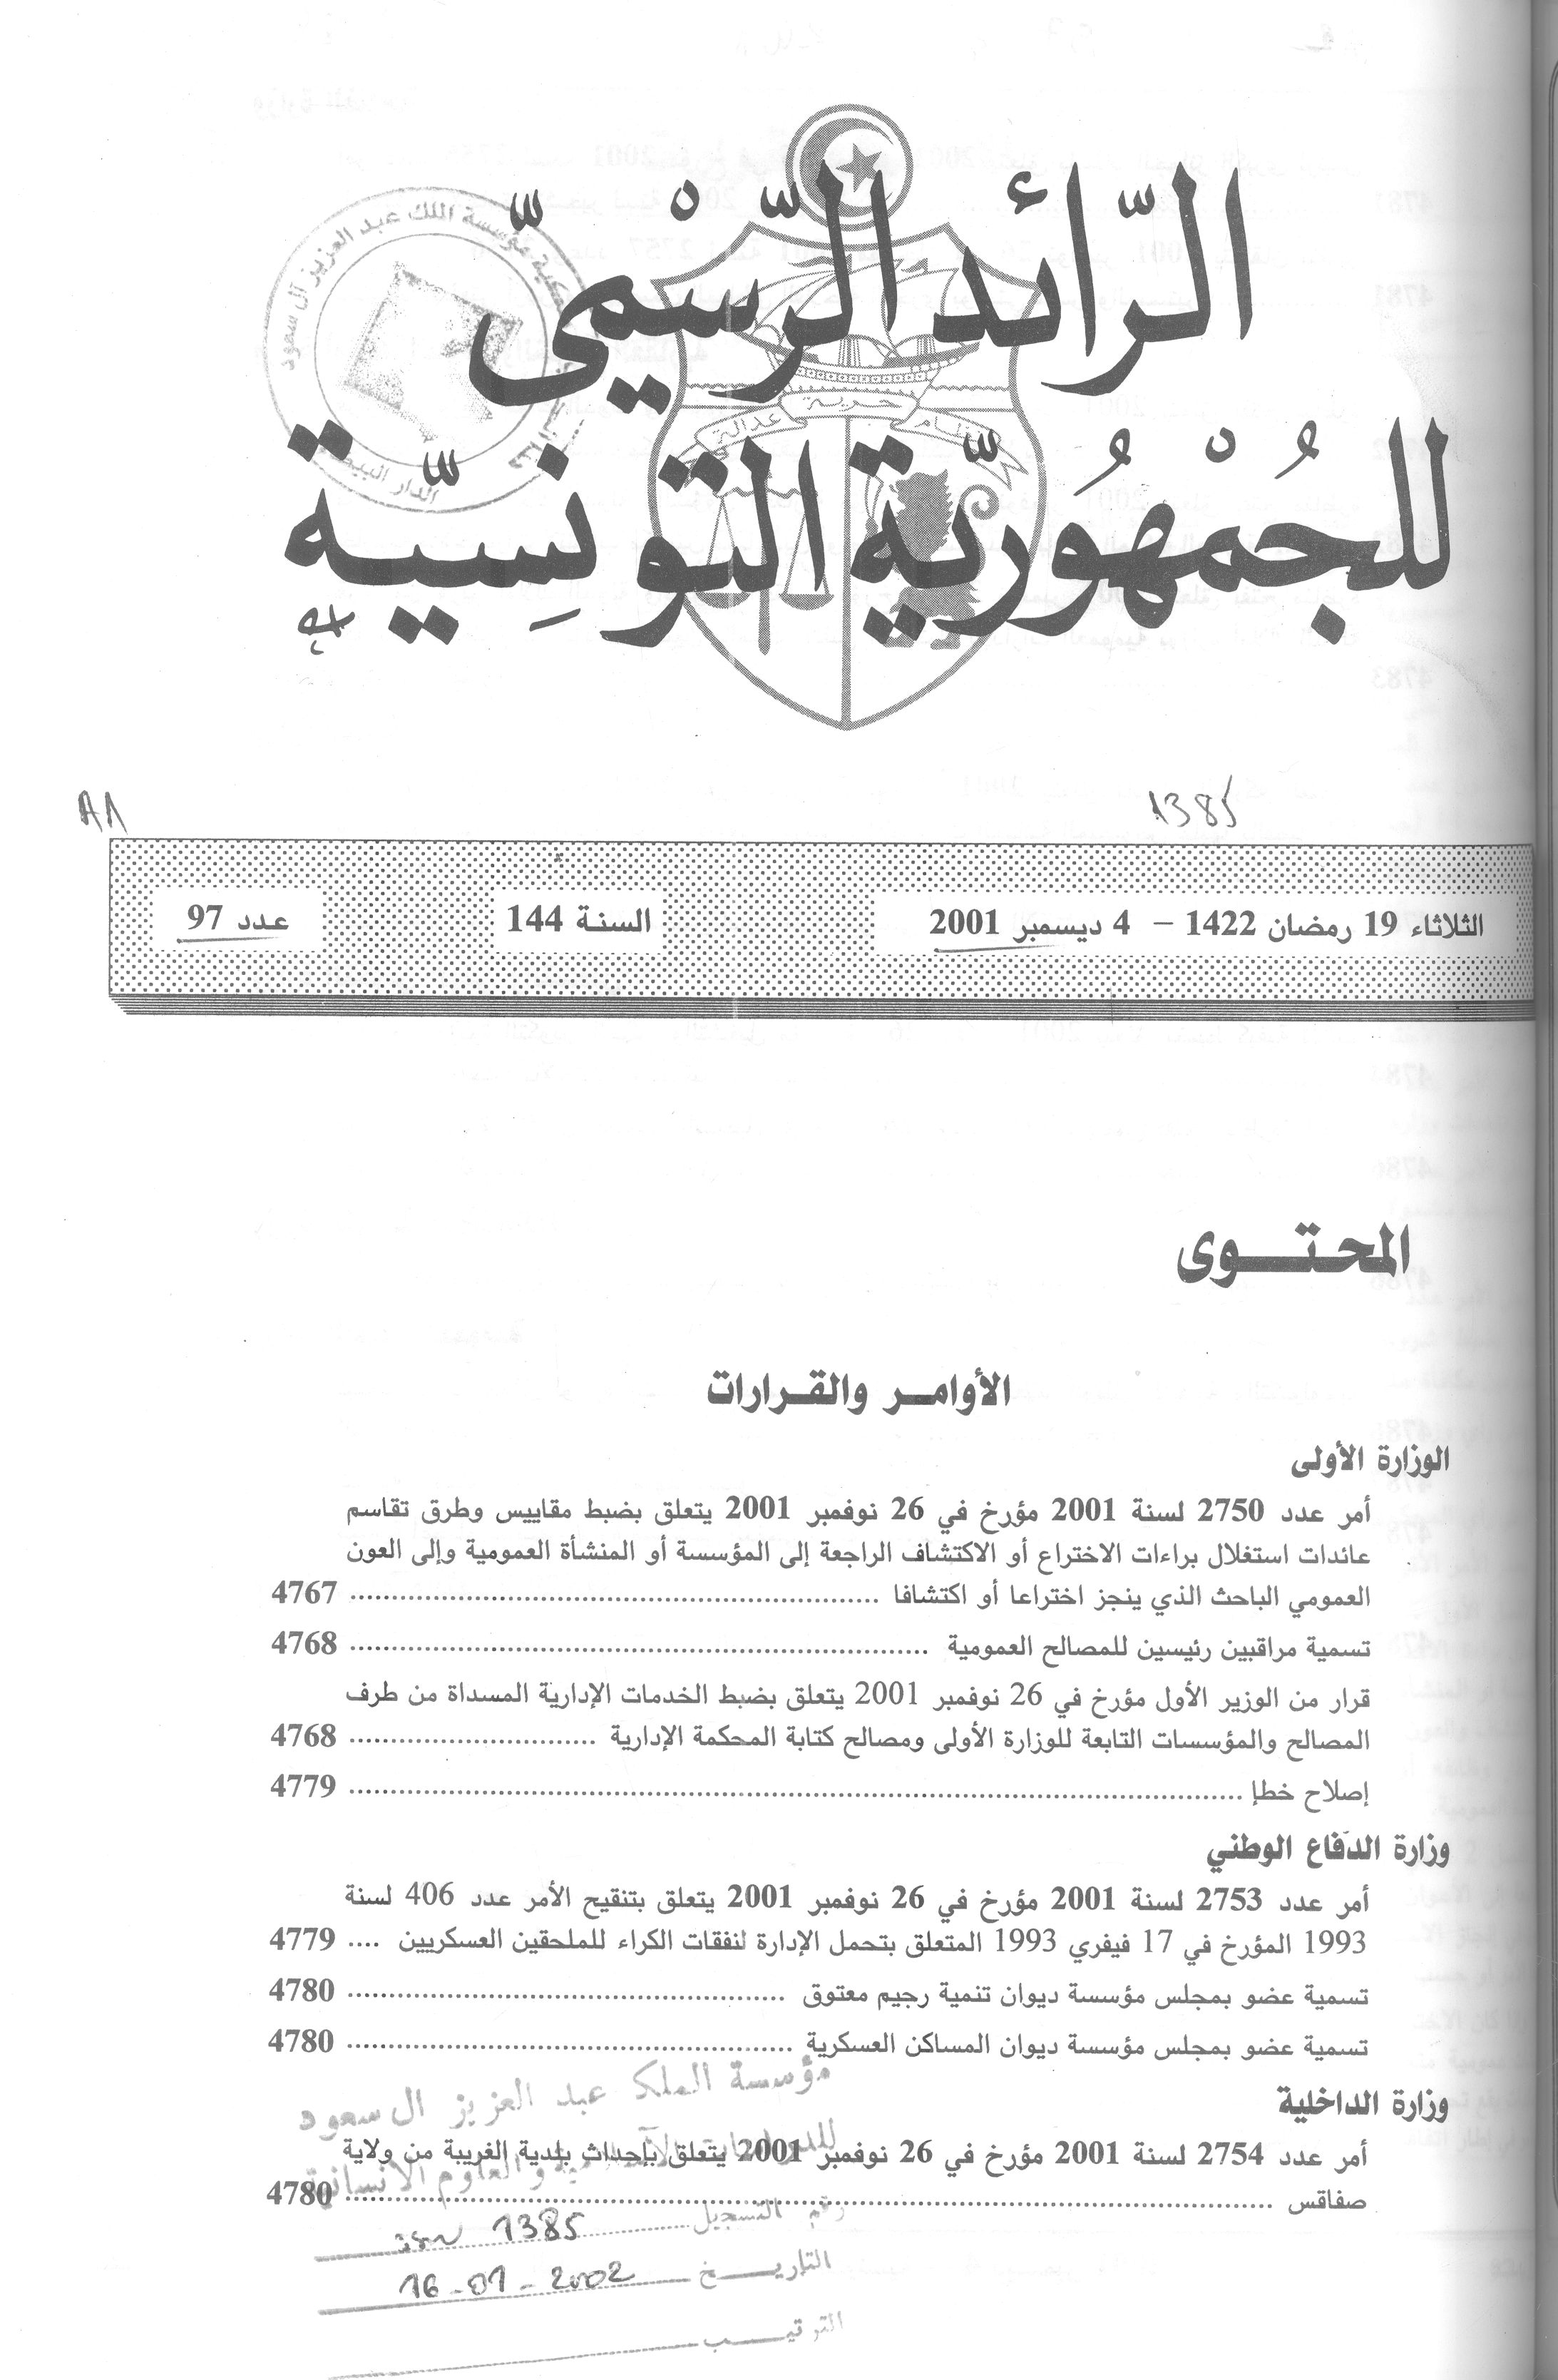 الرّائد الرّسْميّ
للجُمْهُوريّة التونِسيّة
نظام حرية عدالة
مؤسسة الملك عبد العزيز آل سعود
الدار البيضاء
A1
1385
الثلاثاء 19 رمضان 1422 – 4 ديسمبر 2001
السنة 144
عدد 97
المحتوى
الأوامر والقرارات
الوزارة الأولى
أمر عدد 2750 لسنة 2001 مؤرخ في 26 نوفمبر 2001 يتعلق بضبط مقاييس وطرق تقاسم
عائدات استغلال براءات الاختراع أو الاكتشاف الراجعة إلى المؤسسة أو المنشأة العمومية وإلى العون
العمومي الباحث الذي ينجز اختراعا أو اكتشافا ........ 4767
تسمية مراقبين رئيسين للمصالح العمومية ........ 4768
قرار من الوزير الأول مؤرخ في 26 نوفمبر 2001 يتعلق بضبط الخدمات الإدارية المسداة من طرف
المصالح والمؤسسات التابعة للوزارة الأولى ومصالح كتابة المحكمة الإدارية ........ 4768
إصلاح خطإ ........ 4779
وزارة الدّفاع الوطني
أمر عدد 2753 لسنة 2001 مؤرخ في 26 نوفمبر 2001 يتعلق بتنقيح الأمر عدد 406 لسنة
1993 المؤرخ في 17 فيفري 1993 المتعلق بتحمل الإدارة لنفقات الكراء للملحقين العسكريين .... 4779
تسمية عضو بمجلس مؤسسة ديوان تنمية رجيم معتوق ........ 4780
تسمية عضو بمجلس مؤسسة ديوان المساكن العسكرية ........ 4780
وزارة الداخلية
أمر عدد 2754 لسنة 2001 مؤرخ في 26 نوفمبر 2001 يتعلق بإحداث بلدية الغريبة من ولاية
صفاقس ........ 4780
مؤسسة الملك عبد العزيز ال سعود
للدراسات الاسلامية والعلوم الانسانية
رقم التسجيل 1385
التاريخ 16-01-2002
الترتيب